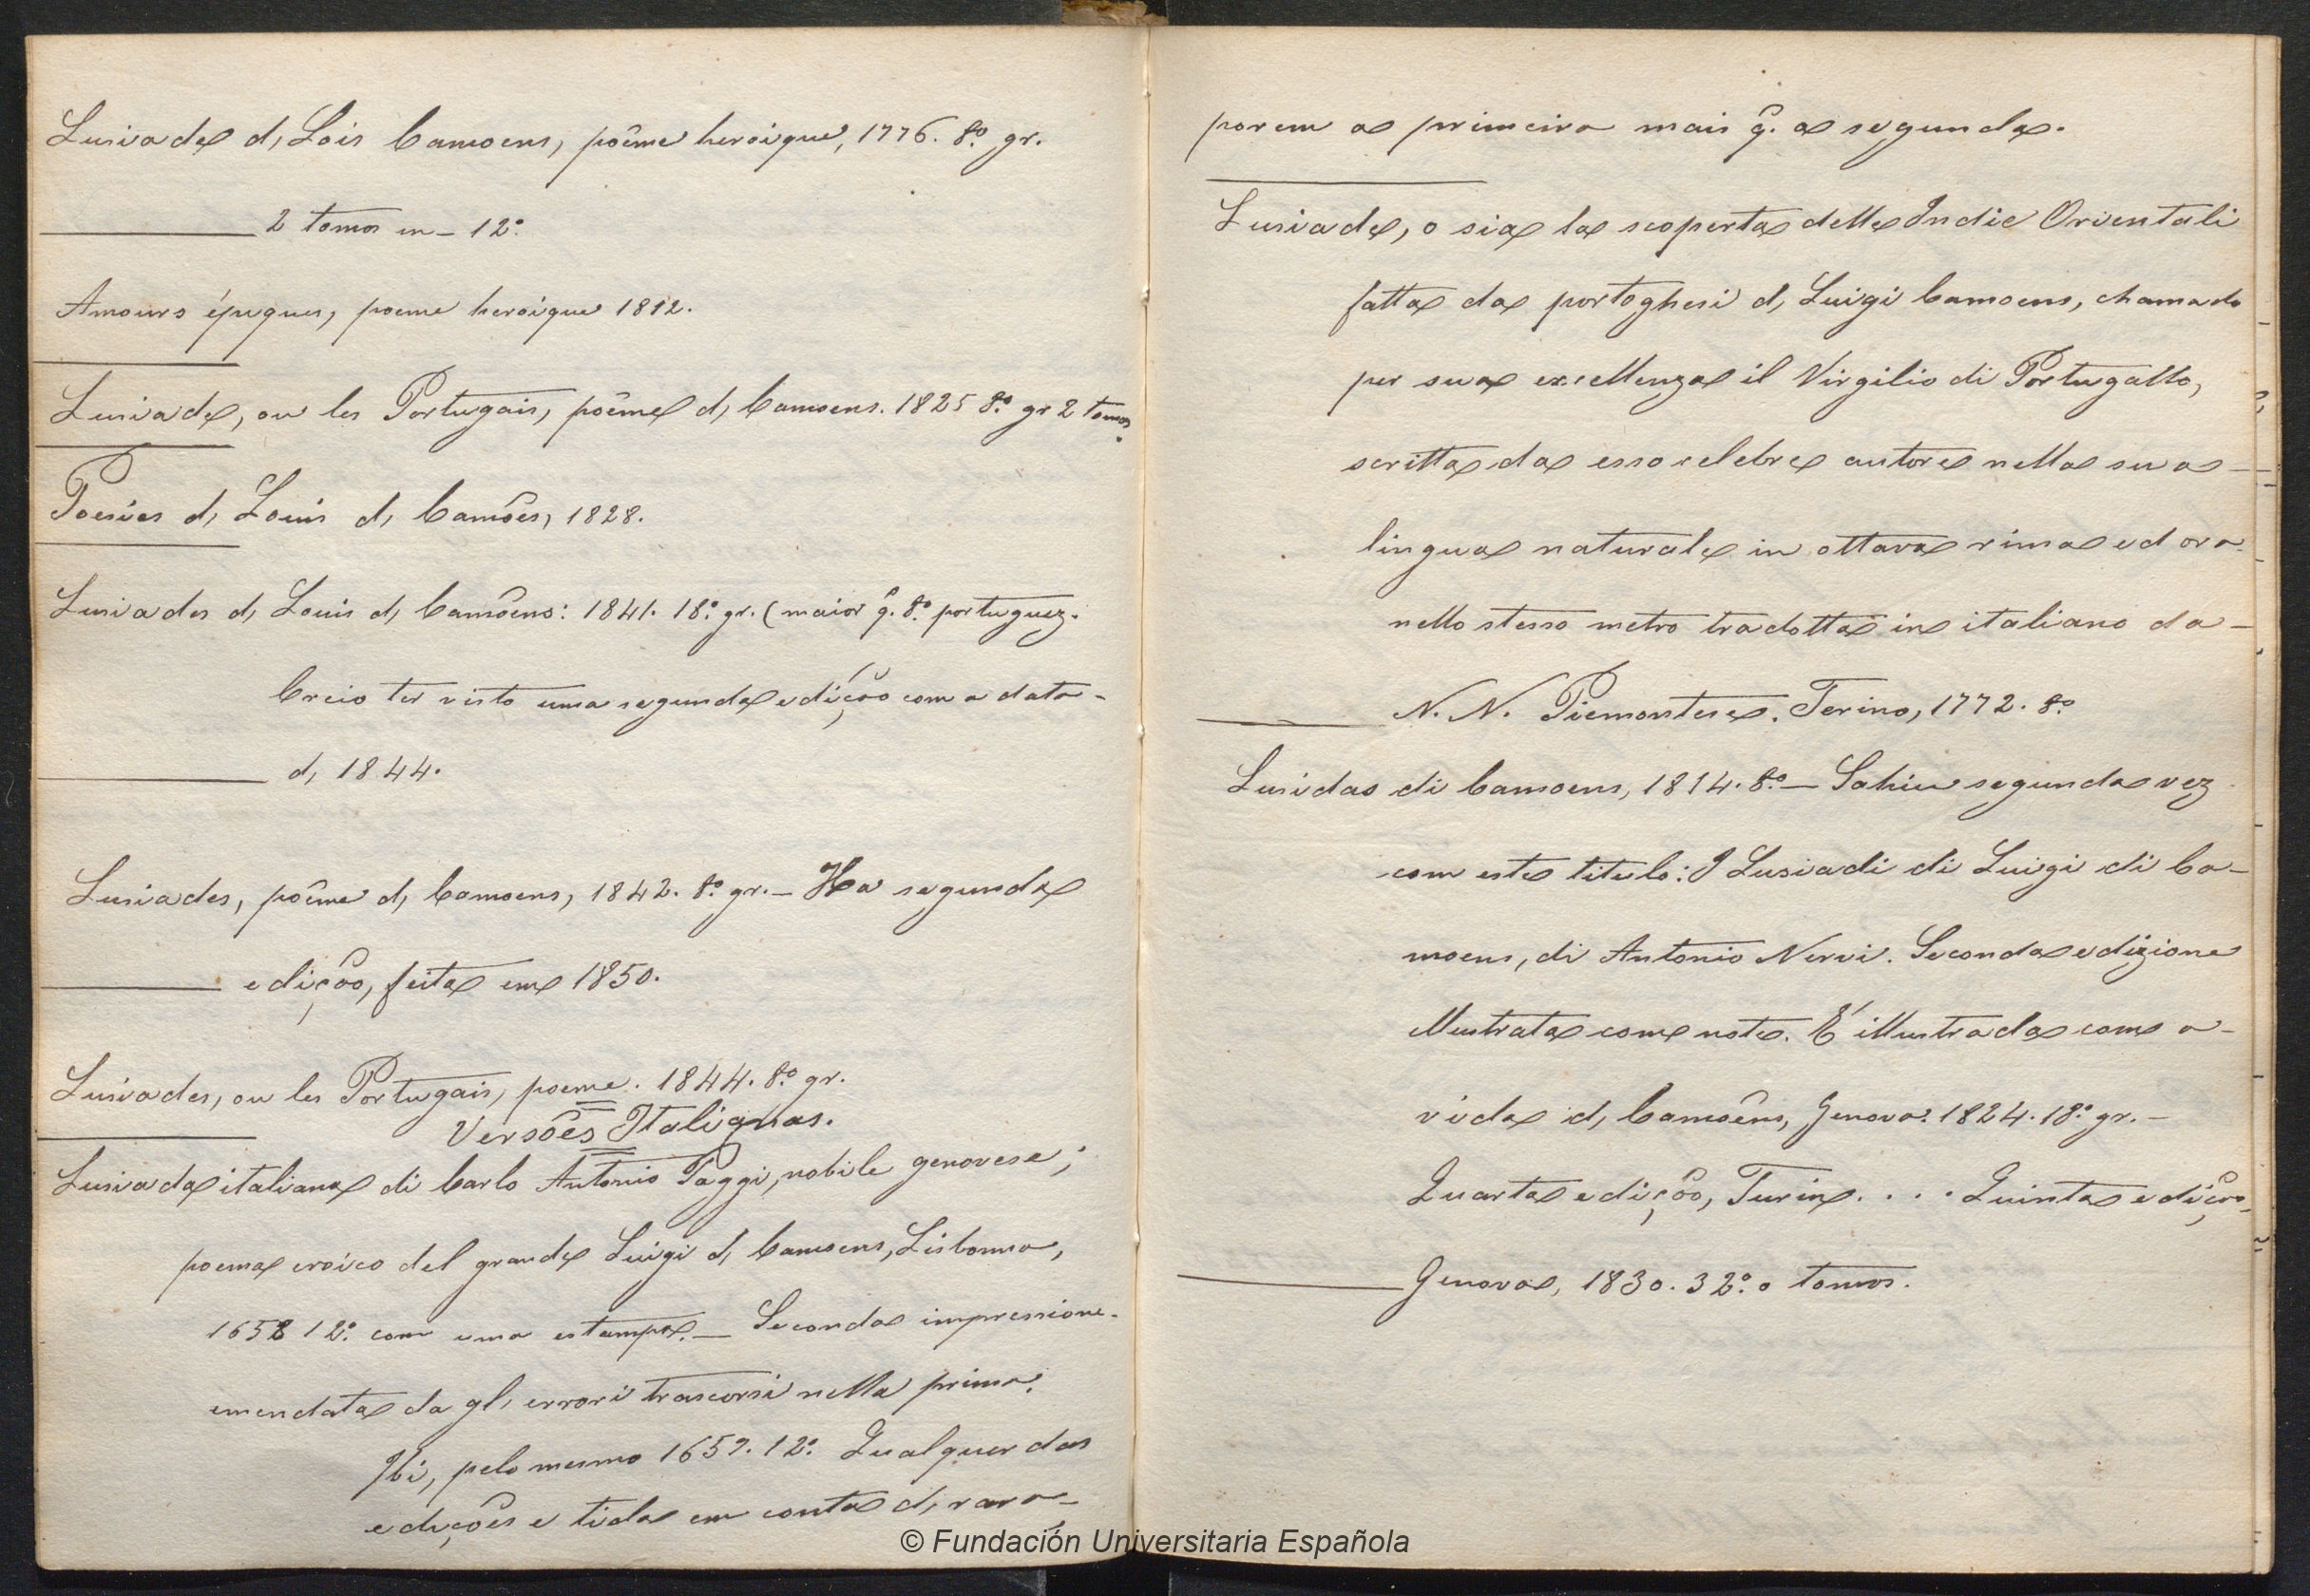 Lusiade d, Lois Camoens, poême heroique, 1776. 8.º gr.
2 tomos in-12.º
Amours épiques, poeme heroique 1812.
Lusiade, ou les Portugais, poême d, Camoens. 1825 8.º gr 2 tomos.
Poesies d, Louis d, Camôes, 1828.
Lusiades d, Louis d, Camôens: 1841. 18.º gr. (maior q̃. 8.º portuguez.
Creio ter visto uma segunda edição com a data
d, 1844.
Lusiades, poême d, Camoens, 1842. 8.º gr. — Ha segunda
edição, feita em 1850.
Lusiades, ou les Portugais, poeme. 1844. 8.º gr.
Versões Italianas.
Lusiada italiana di Carlo Antonio Paggi, nobile genovese;
poema eroico del grande Luigi d, Camoens, Lisbonna,
1658 12.º com uma estampa. — Seconda impressione
emendata da gl, errori trascorsi nella prima.
Ibi, pelo mesmo 1659. 12.º Qualquer das
edições e tida em conta d, rara
porem a primeira mais q̃. a segunda.
Lusiade, o sia la scoperta delle Indie Orientali
fatta da portoghesi d, Luigi Camoens, chamado
per sua excellenza il Virgilio di Portugallo,
scritta da esso celebre autore nella sua
lingua naturale in ottava rima ed ora
nello stesso metro tradotta in italiano da
N. N. Piemontese. Terino, 1772. 8.º
Lusidas di Camoens, 1814. 8.º — Sahiu segunda vez
com este titulo: I Lusiadi di Luigi di Ca-
moens, di Antonio Nervi. Seconda edizione
illustrata come note. É illustrada com a
vida d, Camôens, Genova: 1824. 18.º gr. —
Quarta edição, Turin. . . . Quinta edição,
Genova, 1830. 32.º o tomos.
© Fundación Universitaria Española